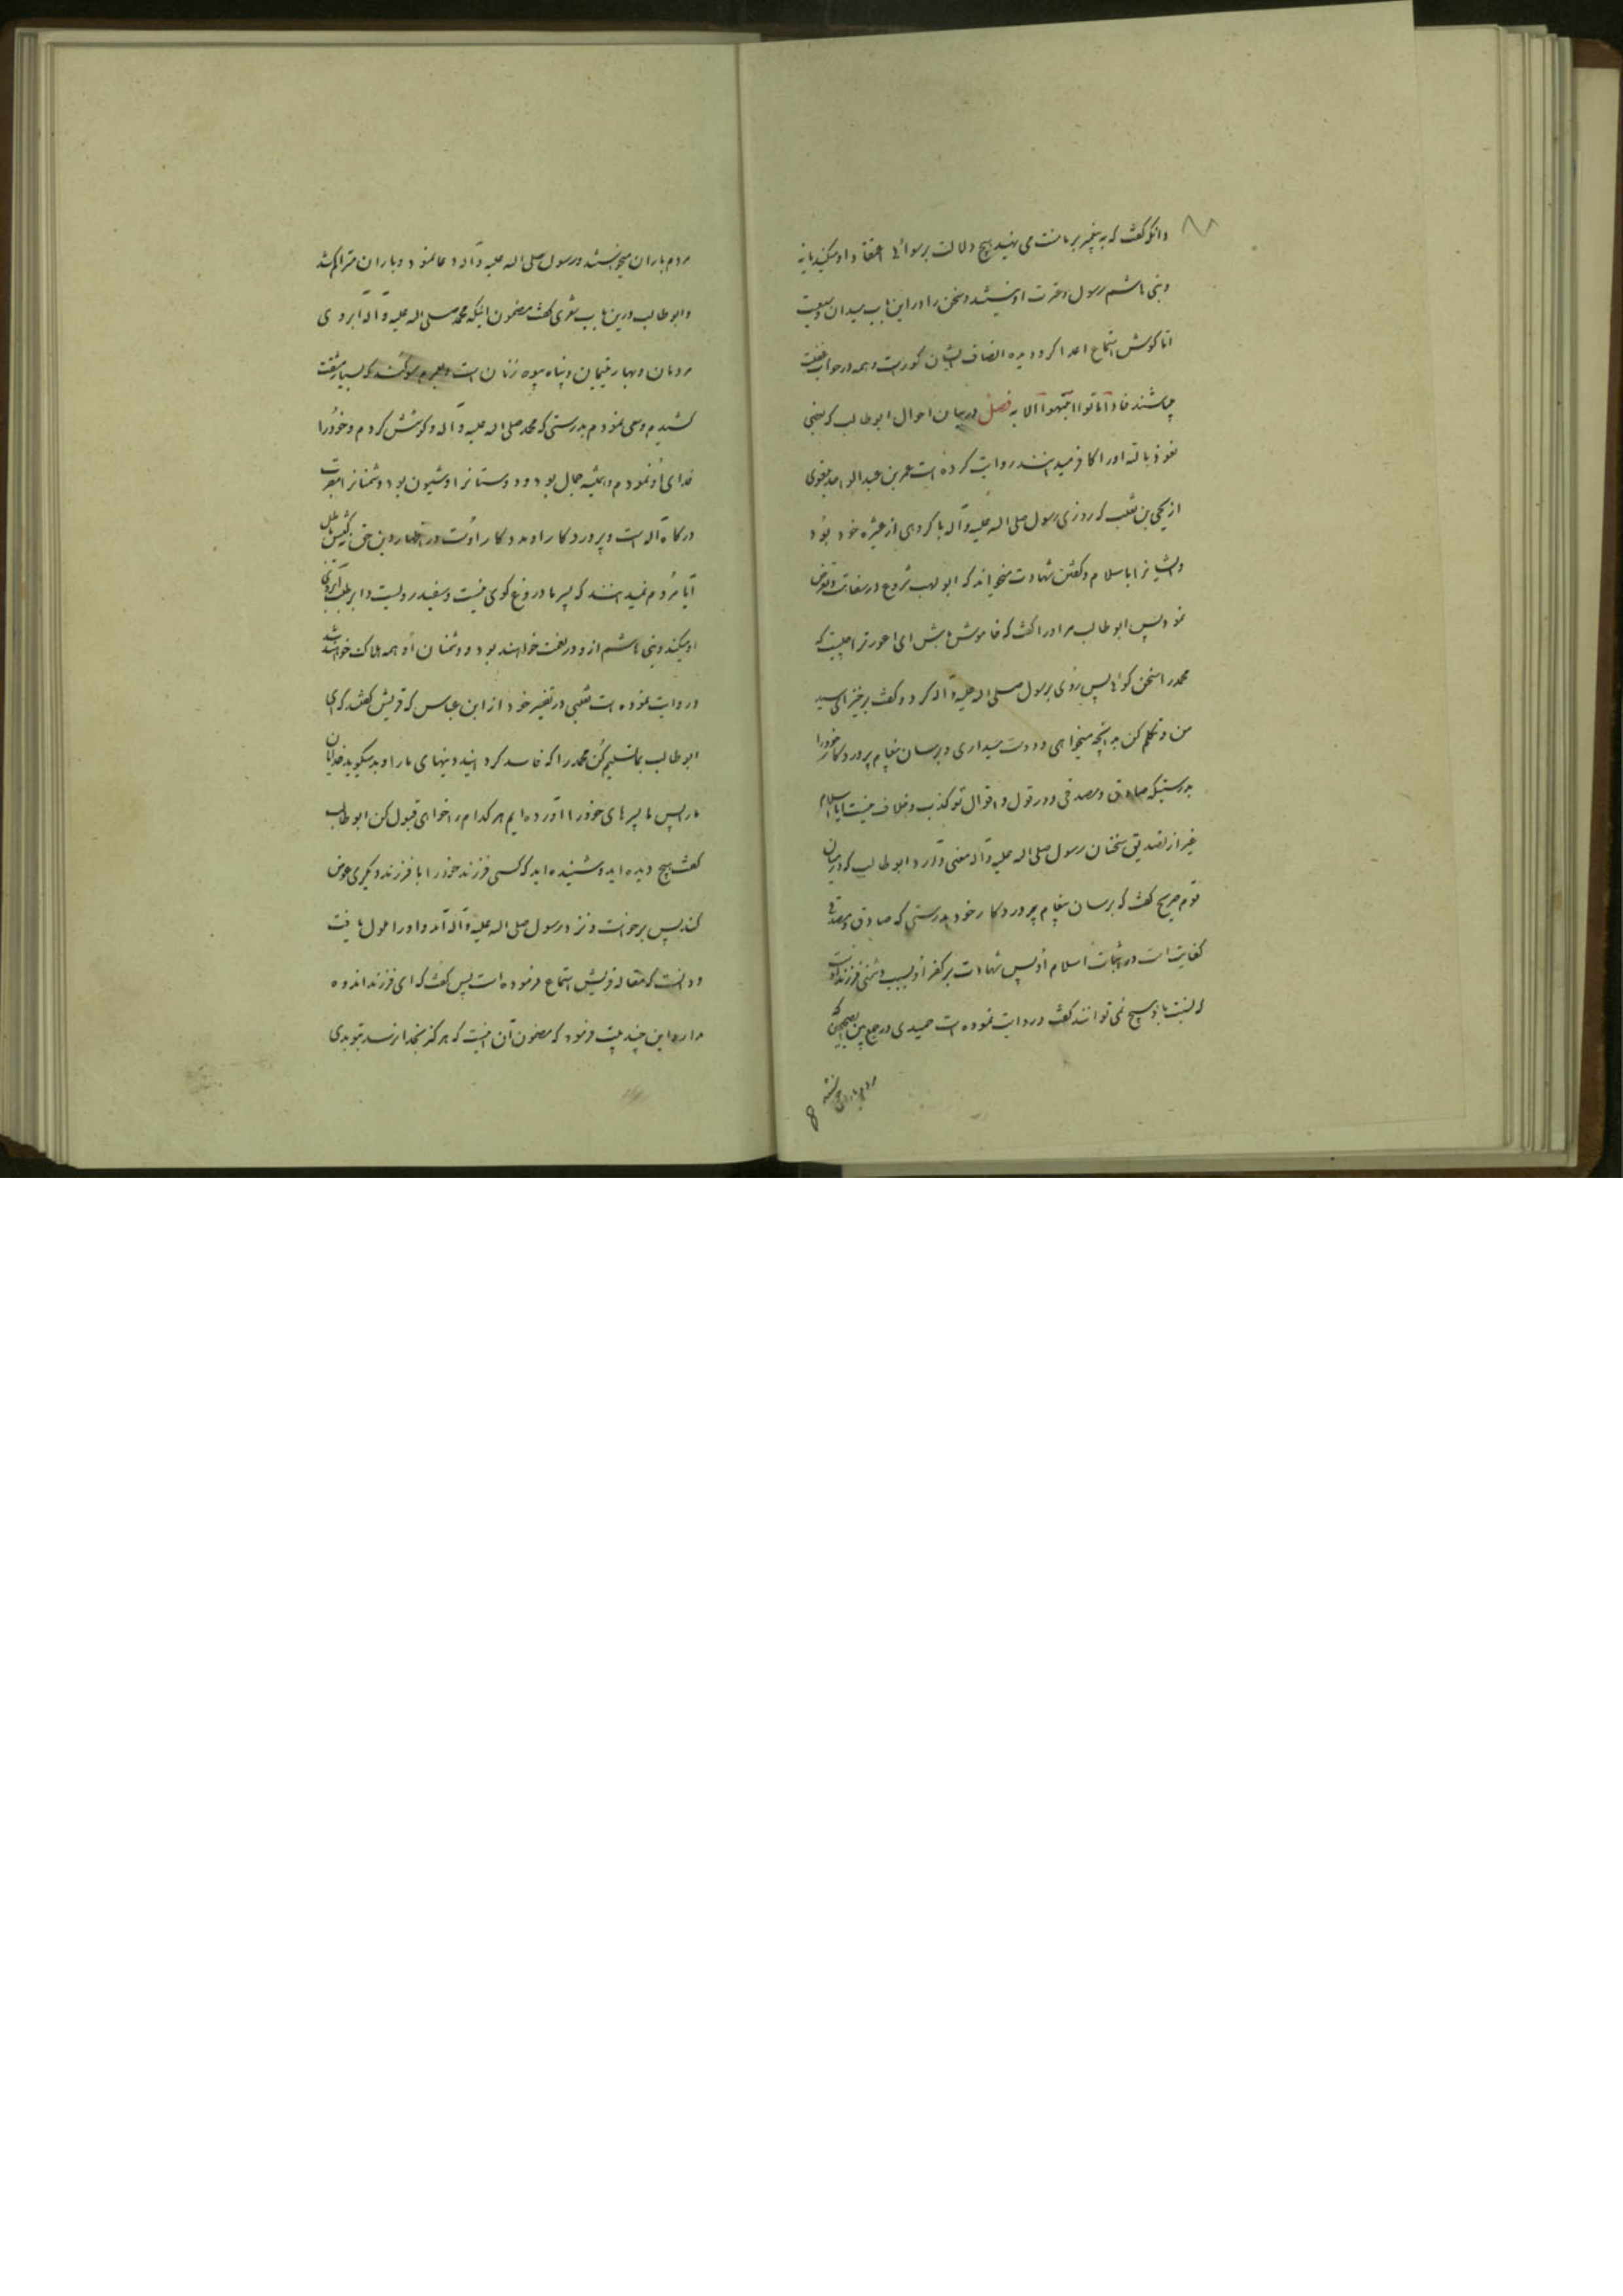 ۸۸
وانکو گفت که به پیغمبر بر ما منت می نهید هیچ دلالت بر رسوائی اعتقاد او میکند یا نه
و بنی هاشم رسول و عترت او نیستند و سخن را در این باب میدان وسیعیت
اما گوش استماع اعدا کر و دیده انصاف ایشان کور است و همه در خواب غفلت
میباشند فاذا ماتوا انتبهوا الا به فصل در بیان احوال ابو طالب که بعضی
نعوذ بالله او را کافر میدانند روایت کرده است عمر بن عبد الواحد لغوی
از یحیی بن ثعلب که روزی رسول صلی الله علیه وآله با گروهی از عشیره خود بود
و ایشانرا باسلام و گفتن شهادت میخواند که ابو لهب شروع در سفاهت و تعرض
نمود پس ابو طالب مر او را گفت که خاموش باش ای اعور ترا چیست که
محمد را سخن کوئی پس روی برسول صلی الله علیه وآله کرد و گفت برخیز ای سید
من و تکلم کن به آنچه میخواهی و دوست میداری و برسان پیغام پروردگار خود را
بدرستیکه صادق و مصدقی و در قول و اقوال تو کذب و خلاف نیست ایا اسلام
غیر از تصدیق سخنان رسول صلی الله علیه وآله معنی دارد ابو طالب که در میان
قوم صریح گفت که برسان پیغام پروردگار خود بدرستی که صادق و مصدقی
کفایت است در اثبات اسلام او پس شهادت بر کفر او بسبب دشمنی فرزند اوست
که نسبت باو هیچ نمی توانند گفت و روایت نموده است حمیدی در جمع بین الصحیحین که
مردم باران میخواستند
8
مردم باران میخواستند و رسول صلی الله علیه وآله دعا نمود و باران متراکم شد
و ابو طالب درین باب شعری گفت مضمون اینکه محمد صلی الله علیه وآله آبروی
مردمان و بهار یتیمان و پناه بیوه زنان است و بعمرم سوگند که بسیار مشقت
کشیدم و سعی نمودم بدرستی که محمد صلی الله علیه وآله و کوشش کردم و خود را
فدای او نمودم و همیشه جمال بود و دوستانرا و شیون بود دشمنانرا مقرب
درگاه اله است و پروردگار او مددکار اوست در اظهار دین حق کیشش باطل
آیا مردم نمیدانند که پسر ما دروغ گوی نیست و سفید رویست و ابر طلب آبروی
او میکند و بنی هاشم ازو در نعمت خواهند بود و دشمنان او همه هلاک خواهند شد
و روایت نموده است ثعلبی در تفسیر خود از ابن عباس که قریش گفتند که ای
ابو طالب بما تسلیم کن محمد را که فاسد کردانید دینهای ما را و بد میگوید خدایان
ما را پس ما پسرهای خود را آورده ایم هر کدام را خواهی قبول کن ابو طالب
گفت هیچ دیده اید و شنیده اید که کسی فرزند خود را با فرزند دیگری عوض
کند پس برخواست و نزد رسول صلی الله علیه وآله آمد و او را ملول یافت
و دانست که مقاله قریش استماع فرموده است پس گفت که ای فرزند اندوه
مدار و این چند بیت فرمود که مضمون آن اینست که هرگز بخدا نرسد بتو بدی